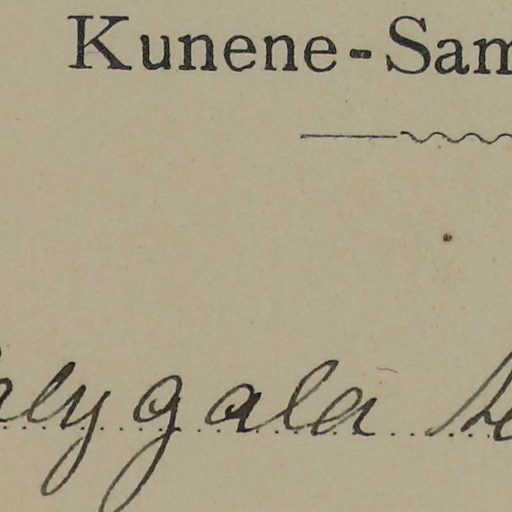 Kunene-Sam
olygala